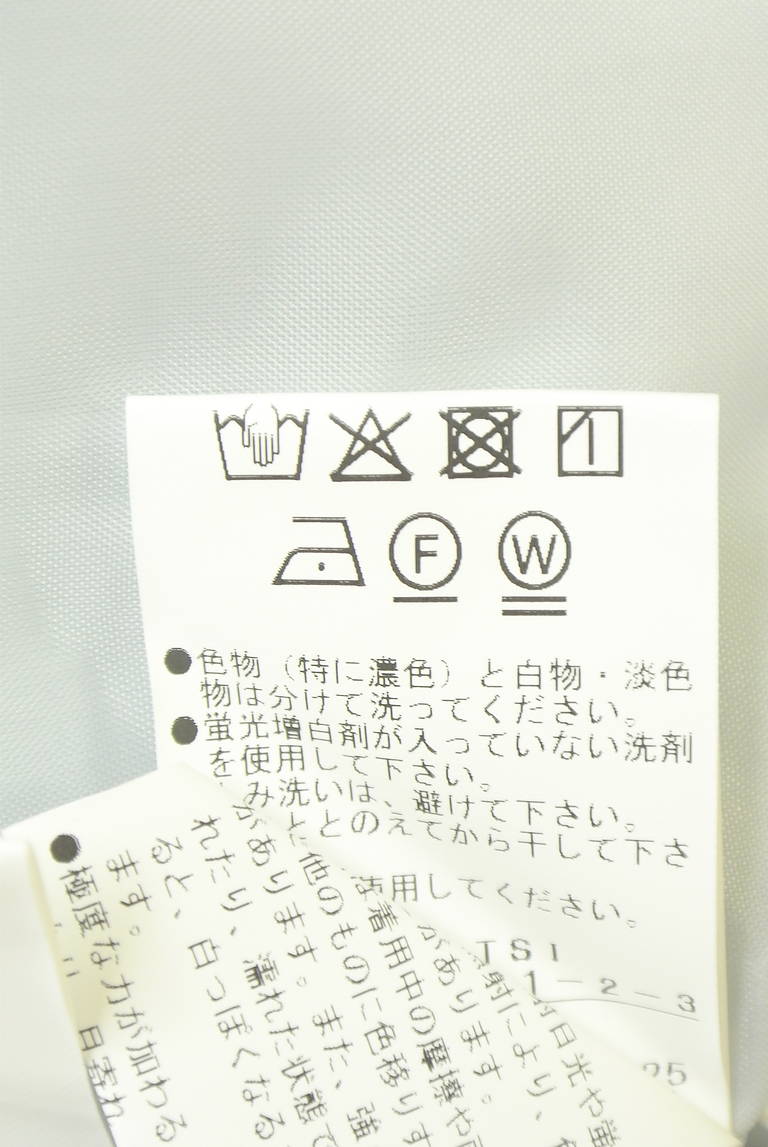 F W
●色物（特に濃色）と白物・淡色
物は分けて洗ってください。
●蛍光増白剤が入っていない洗剤
を使用して下さい。
み洗いは、避けて下さい。
とのえてから干して下さ
用してください。
TSI
1-2-3
25
●極度な力が加わる
目寄れ
ます。
ると、白っぽくなる
れたり、濡れた状態で
があります。また、強
と他のものに色移りす
着用中の摩擦や
があります。
射により、
日光や蛍